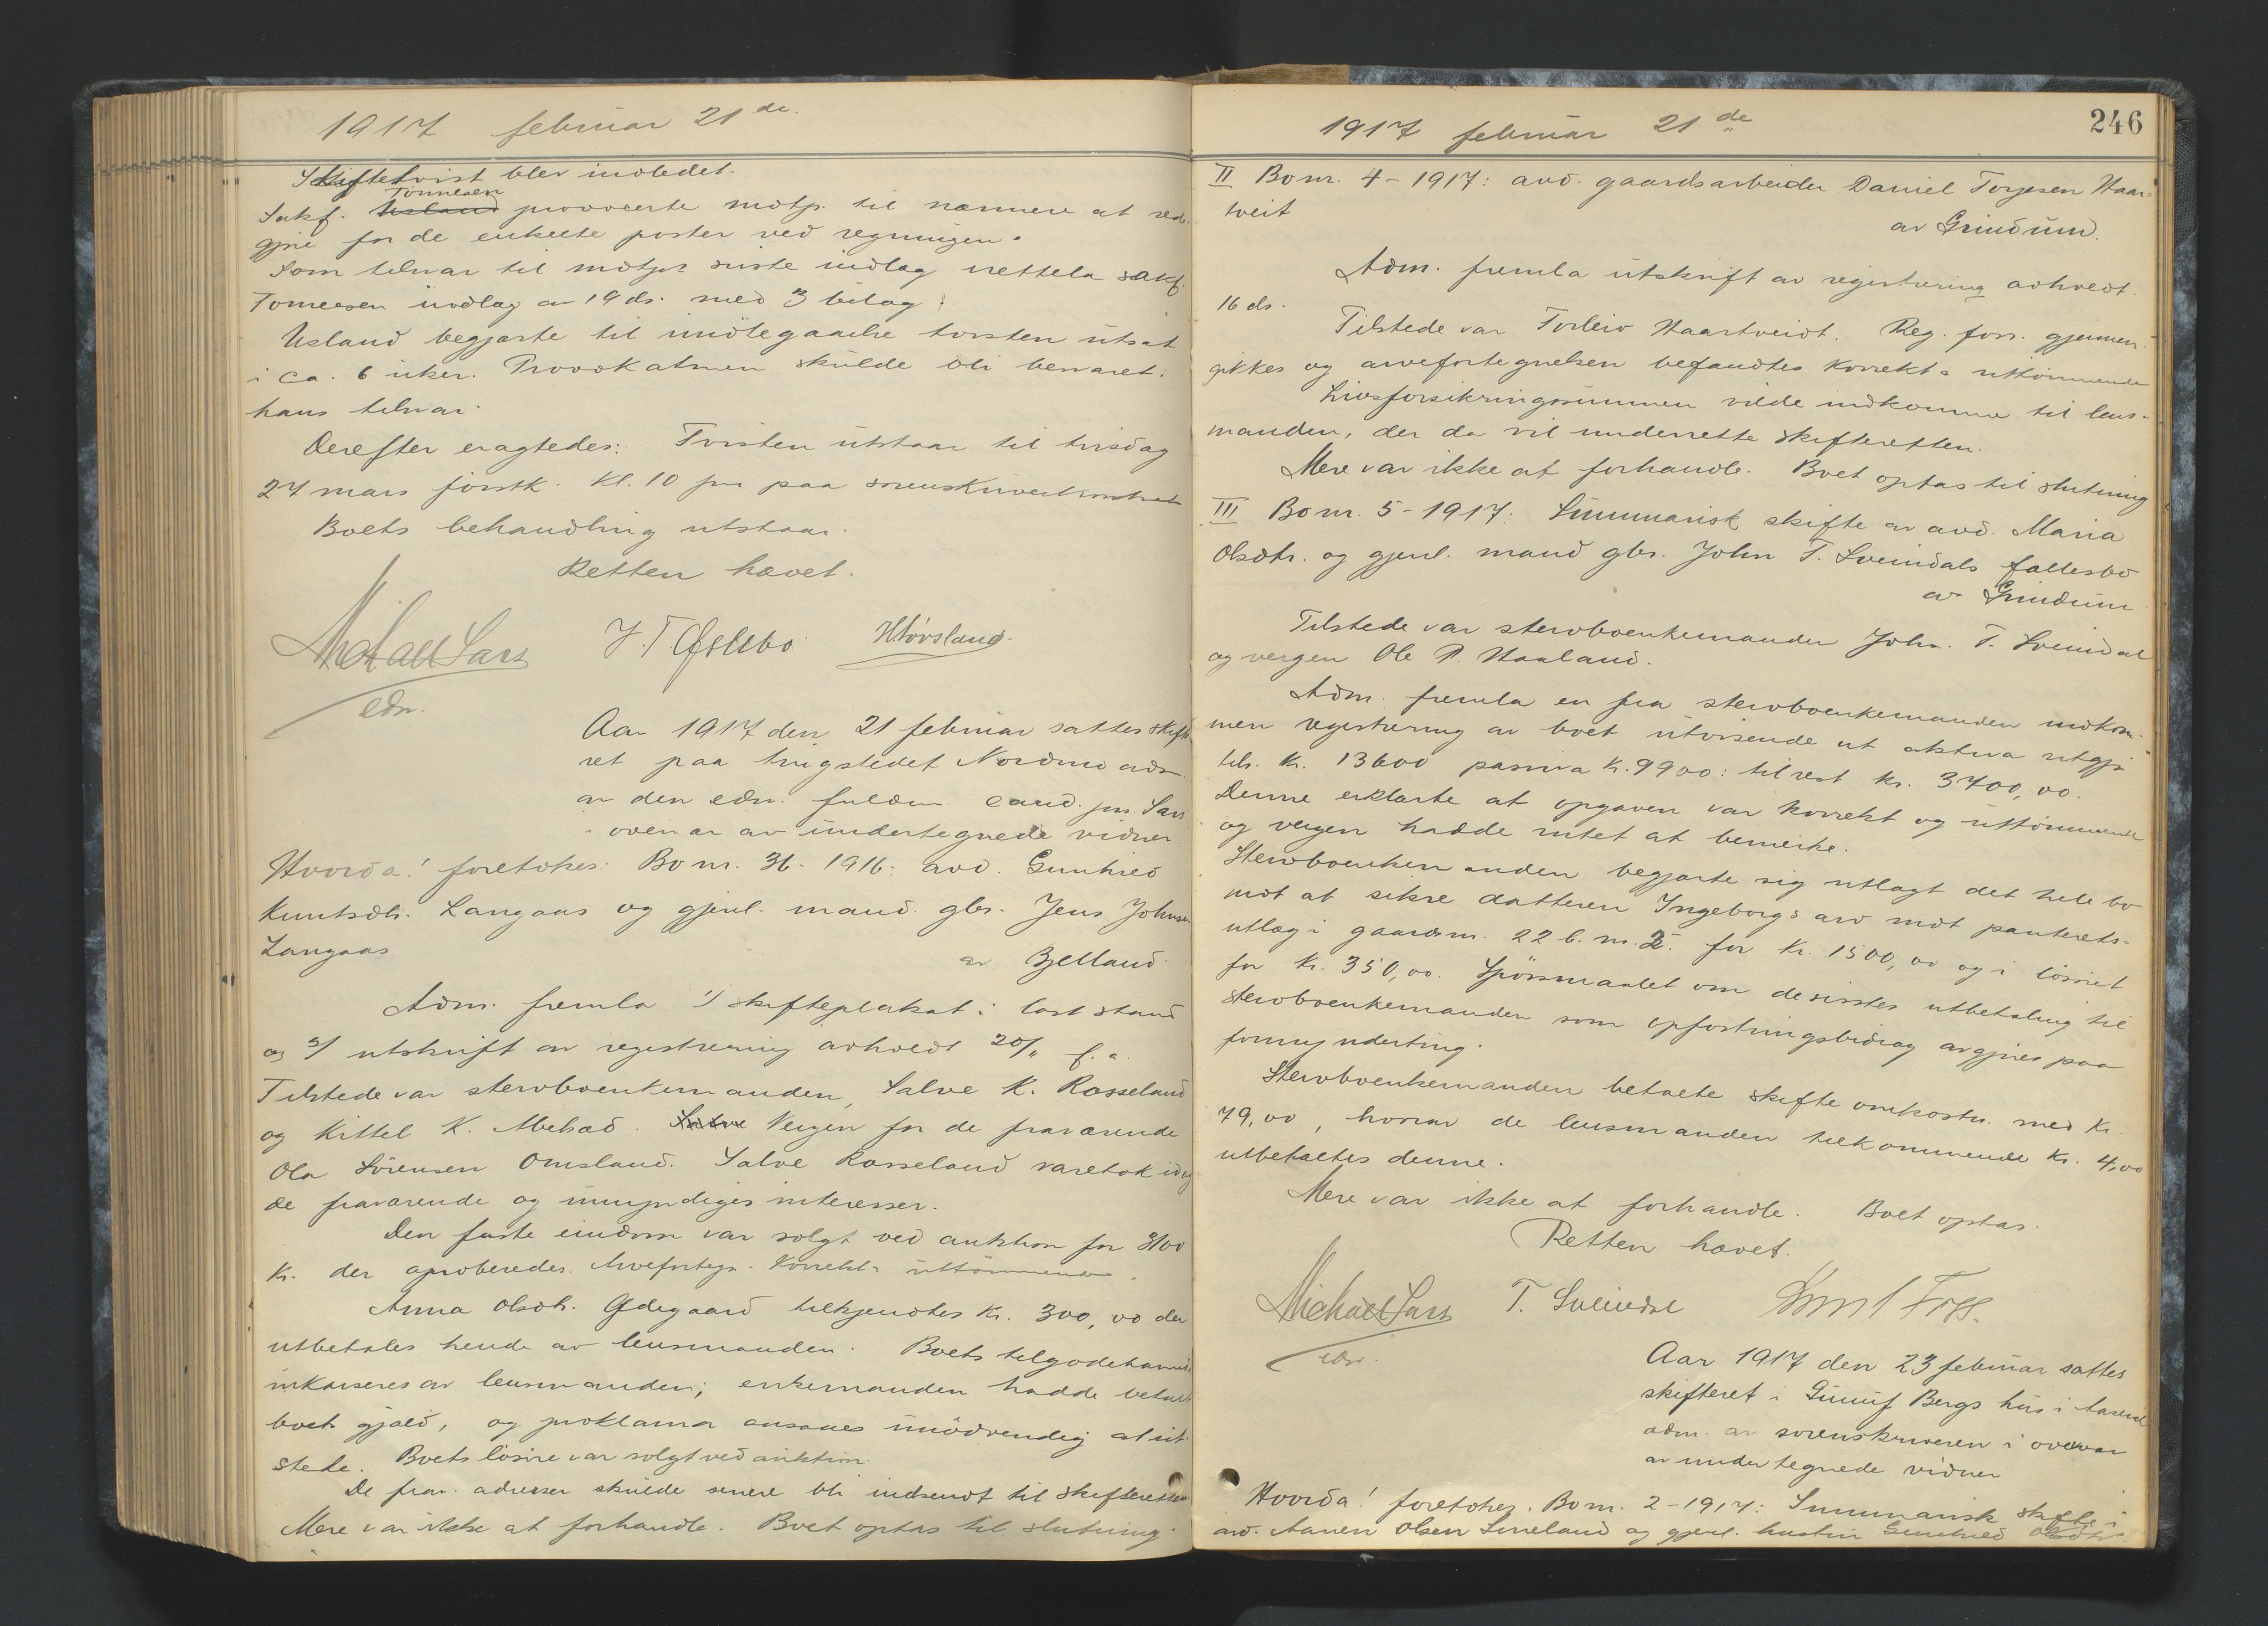 1917 februar 21 de.
Skiftetvist blev indledet.
Tønnesen
Sakf. Usland provocerte motp. til nærmere at rede-
gjøre for de enkelte poster ved regningen.
Som tilsvar til motpts siste indlæg nettela sakf.
Tønnesen indlæg av 19 ds. med 3 bilag.
Usland begjærte til imøtegaaelse tvisten utsat
i ca. 6 uker. Provokationen skulde bli besvaret i
hans tilsvar.
Derefter eragtedes: Tvisten utstaar til tirsdag
27 mars førstk. kl. 10 fm paa sorenskriverkontoret
Boets behandling utstaar.
Retten hævet.
Michael Sars
edsv.
J. T. Øslebø
Htövsland.
Aar 1917 den 21 februar sattes skifte-
ret paa tingstedet Nordmo adm.
av den edsv. fuldm. cand. jur. Sars
i overvær av undertegnede vidner
Hvorda! foretokes: Bo nr. 36-1916: avd. Gunhild
Knutsdtr. Langaas og gjenl. mand gbr. Jens Johnsen
Langaas
av Bjelland.
Adm. fremla 1/ skifteplakat i læst stand
og 2/ utskrift av registrering avholdt 20/11 f. a.
Tilstede var stervboenkemanden, Salve K. Rosseland
og Kittel K. Abelsæd. Salve Vergen for de fraværende
Ola Sørensen Omsland. Salve Rosseland varetok idag
de fraværende og umyndiges interesser.
Den faste eiendom var solgt ved auktion for 3100
kr. der aproberedes. Arvefortegn. korrekt & uttømmende.
Anna Olsdtr. Ødegaard tilkjendtes kr. 300,00 der
utbetales hende av lensmanden. Boets tilgodehavende
inkasseres av lensmanden; enkemanden hadde betalt
boets gjæld, og proklama ansaaes unødvendig at ut-
stede. Boets løsøre var solgt ved auktion.
De frav. adresser skulde senere bli indsendt til skifteretten
Mere var ikke at forhandle. Boet optas til slutning.
1917 februar 21 de
246
II Bo nr. 4-1917: avd. gaardsarbeider Daniel Torjesen Haar-
tveit
av Grindum.
Adm. fremla utskrift av registrering avholdt
16 ds.
Tilstede var Torleiv Haartveidt. Reg. forr. gjennem-
gikkes og arvefortegnelsen befandtes korrekt & uttømmende
Livsforsikringssummen vilde indkomme til lens-
manden, der da vil underrette skifteretten.
Mere var ikke at forhandle. Boet optas til slutning
III Bo nr. 5-1917: Summarisk skifte av avd. Maria
Olsdtr. og gjenl. mand gbr. John T. Sveindals fællesbo
av Grindum
Tilstede var stervboenkemanden John. T. Sveindal
og vergen Ole P. Haaland.
Adm. fremla en fra stervboenkemanden indkom-
men registrering av boet utvisende at aktiva utgjør
tils. kr. 13600 passiva kr. 9900: til rest kr. 3700,00.
Denne erklærte at opgaven var korrekt og uttømmende
og vergen hadde intet at bemerke.
Stervboenkemanden begjærte sig utlagt det hele bo
mot at sikre datteren Ingeborgs arv mot panterets-
utlæg i gaardsnr. 22 b. nr. 2. for kr. 1500,00 og i løsøret
for kr. 350,00. Spørsmaalet om de sistes utbetaling til
stervboenkemanden som opfostringsbidrag avgjøres paa
formynderting.
Stervboenkemanden betalte skifteomkostn. med kr.
79,00, hvorav de lensmanden tilkommende kr. 4,00
utbetaltes denne.
Mere var ikke at forhandle. Boet optas.
Retten hævet.
Michael Sars
edsv.
T. Sveindal
Foss.
Aar 1917 den 23 februar sattes
skifteret i Gunuf Bergs hus i
adm. av sorenskriveren i overvær
av undertegnede vidner
Hvorda! foretokes. Bo nr. 2-1917: Summarisk skifte i
avd. Aanen Olsen Lineland og gjenl. hustru Gunhild Olsdtr.